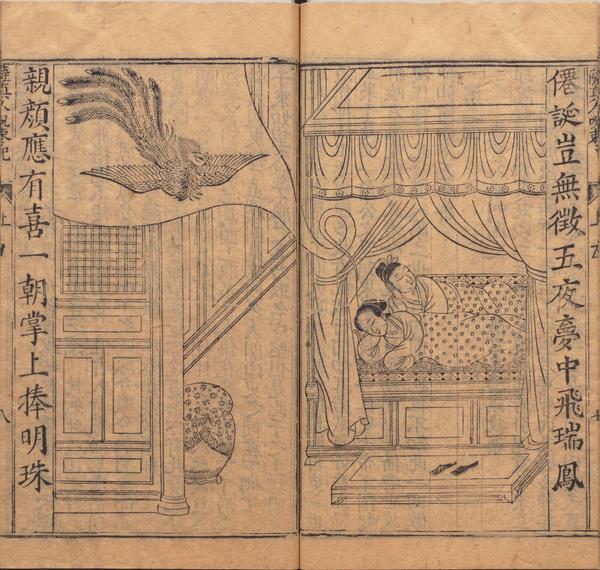 僊誕豈無徵五夜夢中飛瑞鳳
親顏應有喜一朝掌上捧明珠